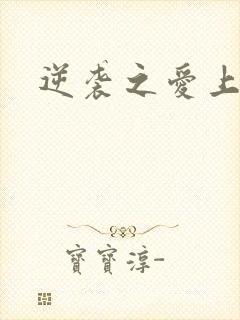 逆袭之愛上
寶寶淳-